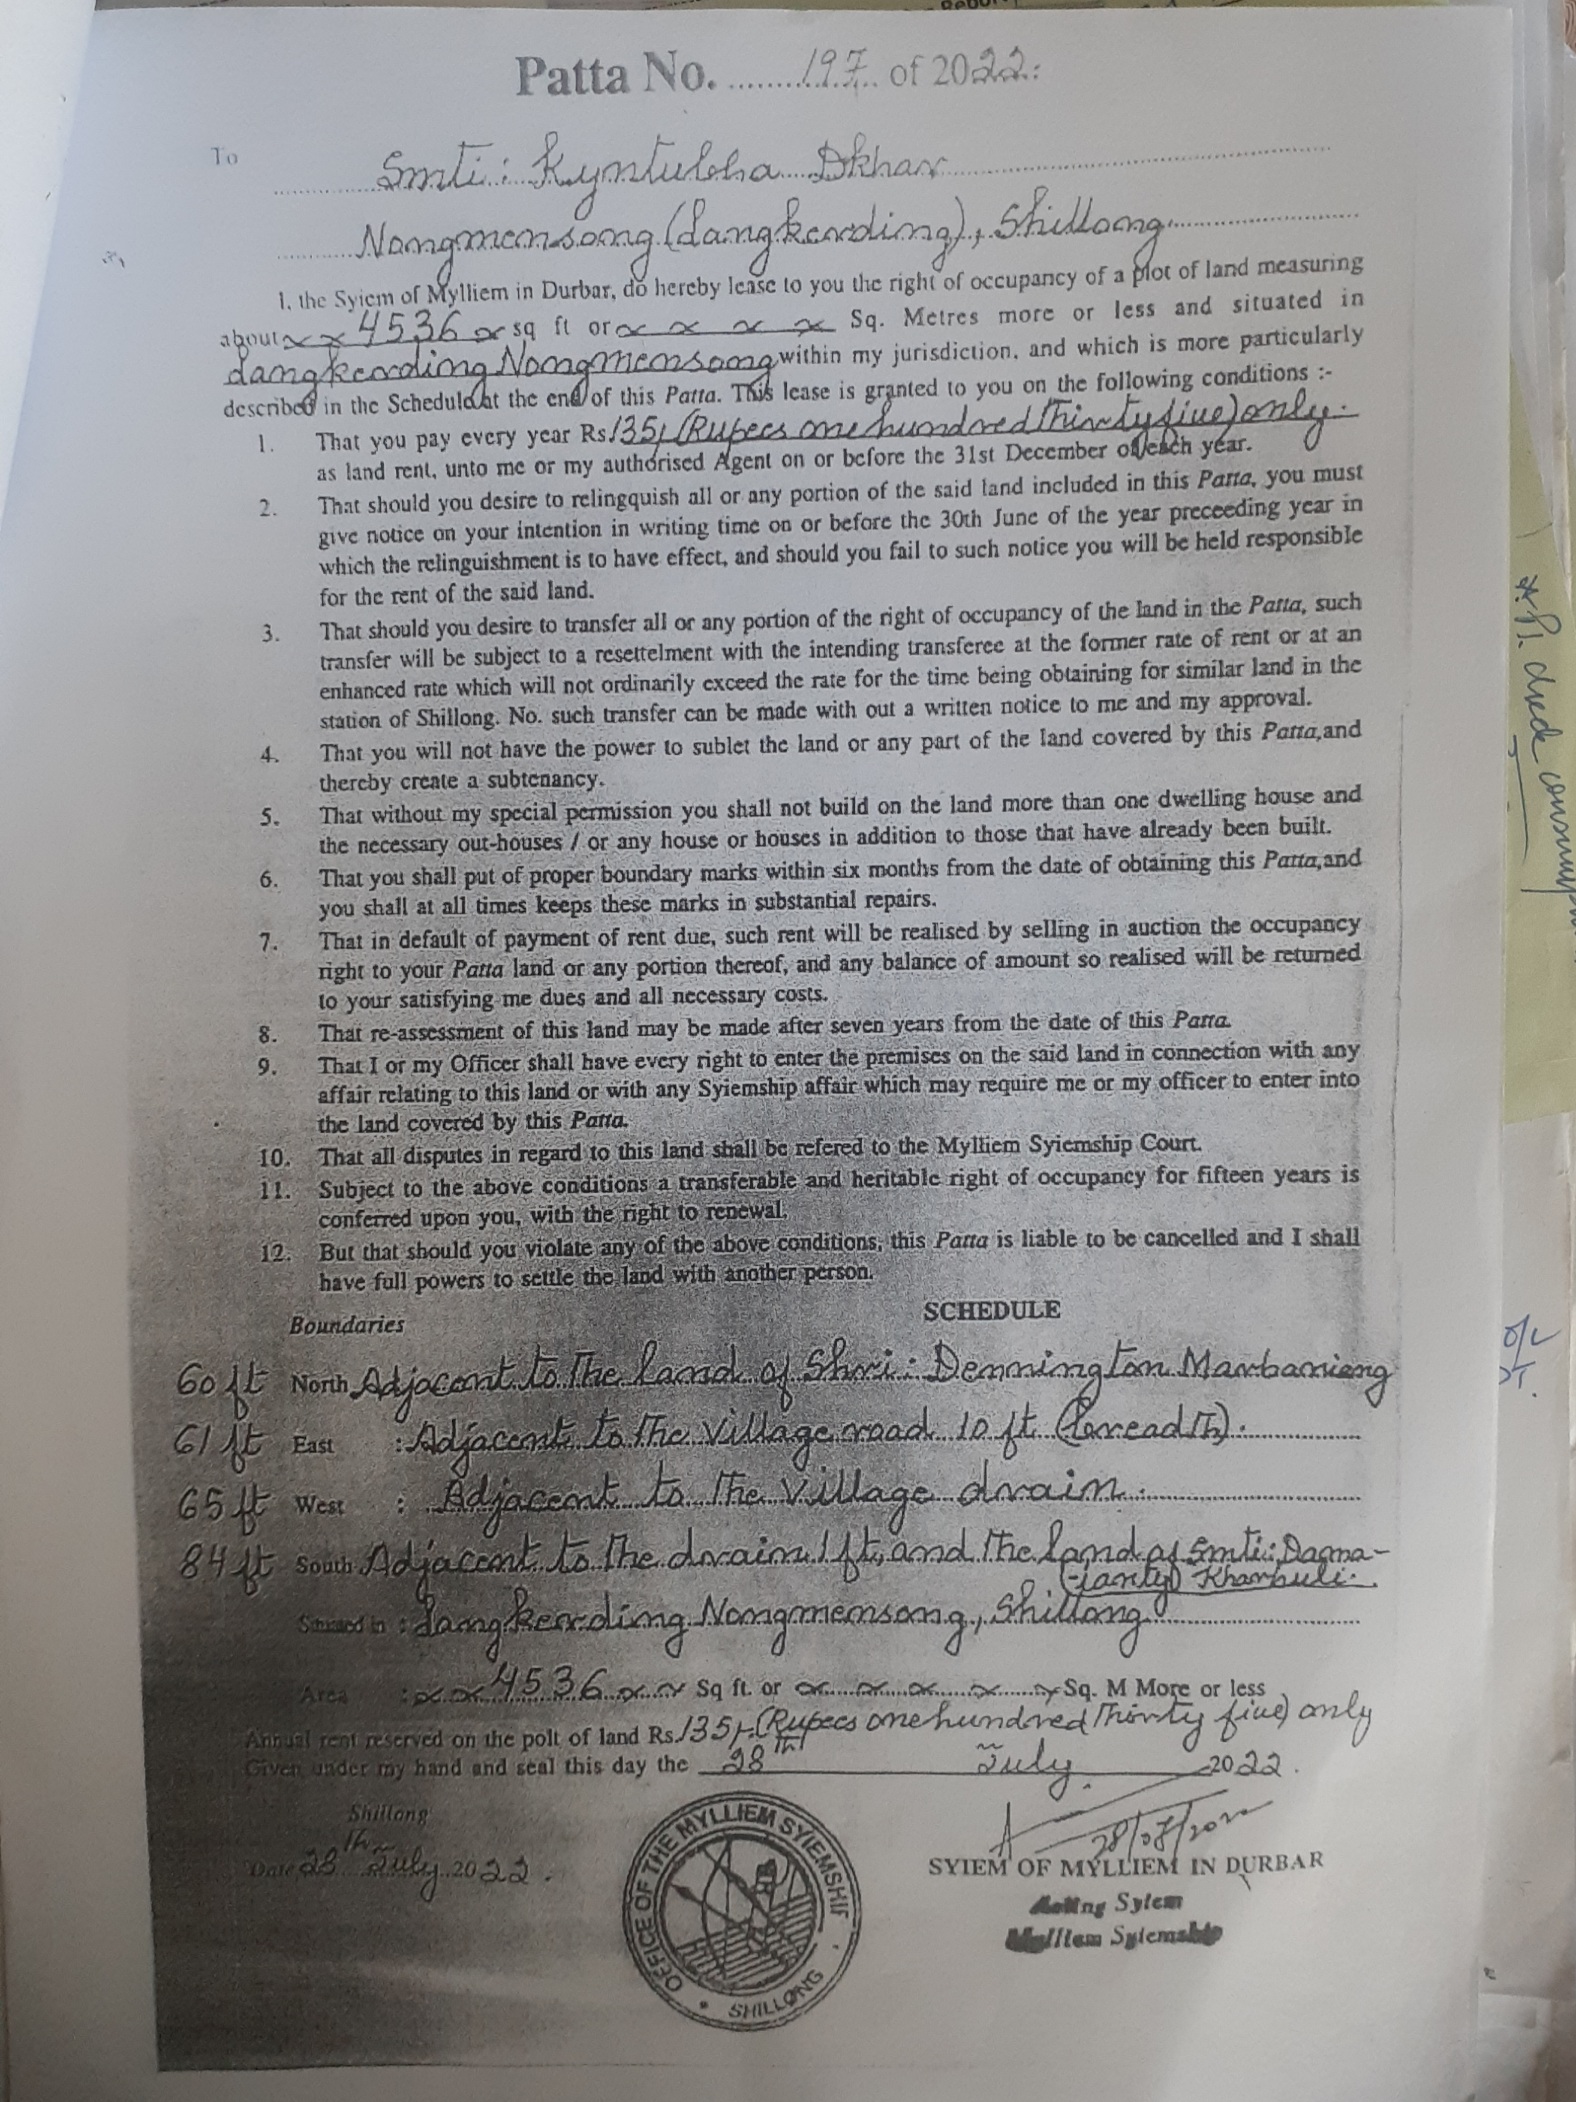 Patta No. 197 of 2022:
To
Smti: Kyntubha Dkhar
Nongmensong (dangkerding), Shillong
I, the Syiem of Mylliem in Durbar, do hereby lease to you the right of occupancy of a plot of land measuring
about 4536 sq ft or Sq. Metres more or less and situated in
dangkerding Nongmensong within my jurisdiction, and which is more particularly
described in the Schedule at the end of this Patta. This lease is granted to you on the following conditions :-
1. That you pay every year Rs 135/- (Rupees one hundred thirty five) only.
as land rent, unto me or my authorised Agent on or before the 31st December of each year.
2. That should you desire to relingquish all or any portion of the said land included in this Patta, you must
give notice on your intention in writing time on or before the 30th June of the year preceeding year in
which the relinguishment is to have effect, and should you fail to such notice you will be held responsible
for the rent of the said land.
3. That should you desire to transfer all or any portion of the right of occupancy of the land in the Patta, such
transfer will be subject to a resettelment with the intending transferee at the former rate of rent or at an
enhanced rate which will not ordinarily exceed the rate for the time being obtaining for similar land in the
station of Shillong. No. such transfer can be made with out a written notice to me and my approval.
4. That you will not have the power to sublet the land or any part of the land covered by this Patta,and
thereby create a subtenancy.
5. That without my special permission you shall not build on the land more than one dwelling house and
the necessary out-houses / or any house or houses in addition to those that have already been built.
6. That you shall put of proper boundary marks within six months from the date of obtaining this Patta,and
you shall at all times keeps these marks in substantial repairs.
7. That in default of payment of rent due, such rent will be realised by selling in auction the occupancy
right to your Patta land or any portion thereof, and any balance of amount so realised will be returned
to your satisfying me dues and all necessary costs.
8. That re-assessment of this land may be made after seven years from the date of this Patta.
9. That I or my Officer shall have every right to enter the premises on the said land in connection with any
affair relating to this land or with any Syiemship affair which may require me or my officer to enter into
the land covered by this Patta.
10. That all disputes in regard to this land shall be refered to the Mylliem Syiemship Court.
11. Subject to the above conditions a transferable and heritable right of occupancy for fifteen years is
conferred upon you, with the right to renewal.
12. But that should you violate any of the above conditions, this Patta is liable to be cancelled and I shall
have full powers to settle the land with another person.
SCHEDULE
Boundaries
60 ft North Adjacent to the land of Shri: Dennington Marbaniang
61 ft East : Adjacent to the Village road 10 ft (breadth).
65 ft West : Adjacent to the Village drain.
84 ft South Adjacent to the drain 1 ft, and the land of Smti: Dama-
(-ianty) Kharhuli.
Situated in : dangkerding Nongmensong, Shillong
Area : 4536 Sq ft. or Sq. M More or less
Annual rent reserved on the polt of land Rs. 135/- (Rupees one hundred thirty five) only
Given under my hand and seal this day the 28th July 2022.
Shillong
Date 28th July 2022.
OFFICE OF THE MYLLIEM SYIEMSHIP
SHILLONG
28/07/2022
SYIEM OF MYLLIEM IN DURBAR
Acting Syiem
Mylliem Syiemship
check